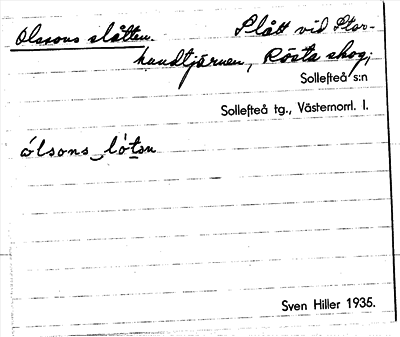 Olssons slåtten. Slått vid Stor-
handtjärnen, Rösta skog;
Sollefteå s:n
Sollefteå tg., Västernorrl. l.
ólsons lótən
Sven Hiller 1935.